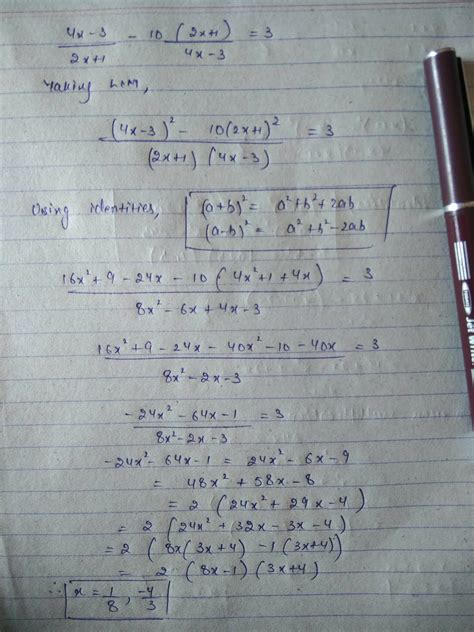 4x-3/2x+1 - 10(2x+1)/4x-3 = 3
Taking LCM,
(4x-3)² - 10(2x+1)²/(2x+1)(4x-3) = 3
Using identities, (a+b)² = a²+b²+2ab
(a-b)² = a²+b²-2ab
16x²+9-24x-10(4x²+1+4x)/8x²-6x+4x-3 = 3
16x²+9-24x-40x²-10-40x/8x²-2x-3 = 3
-24x²-64x-1/8x²-2x-3 = 3
-24x²-64x-1 = 24x²-6x-9
= 48x²+58x-8
= 2(24x²+29x-4)
= 2(24x²+32x-3x-4)
= 2(8x(3x+4)-1(3x+4))
= 2(8x-1)(3x+4)
∴ x = 1/8, -4/3